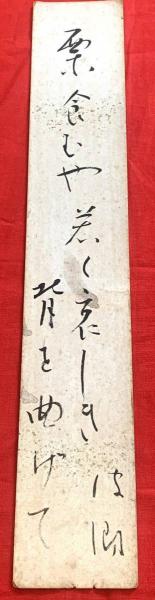 栗食むや若く哀しき
背を曲げて
波郷